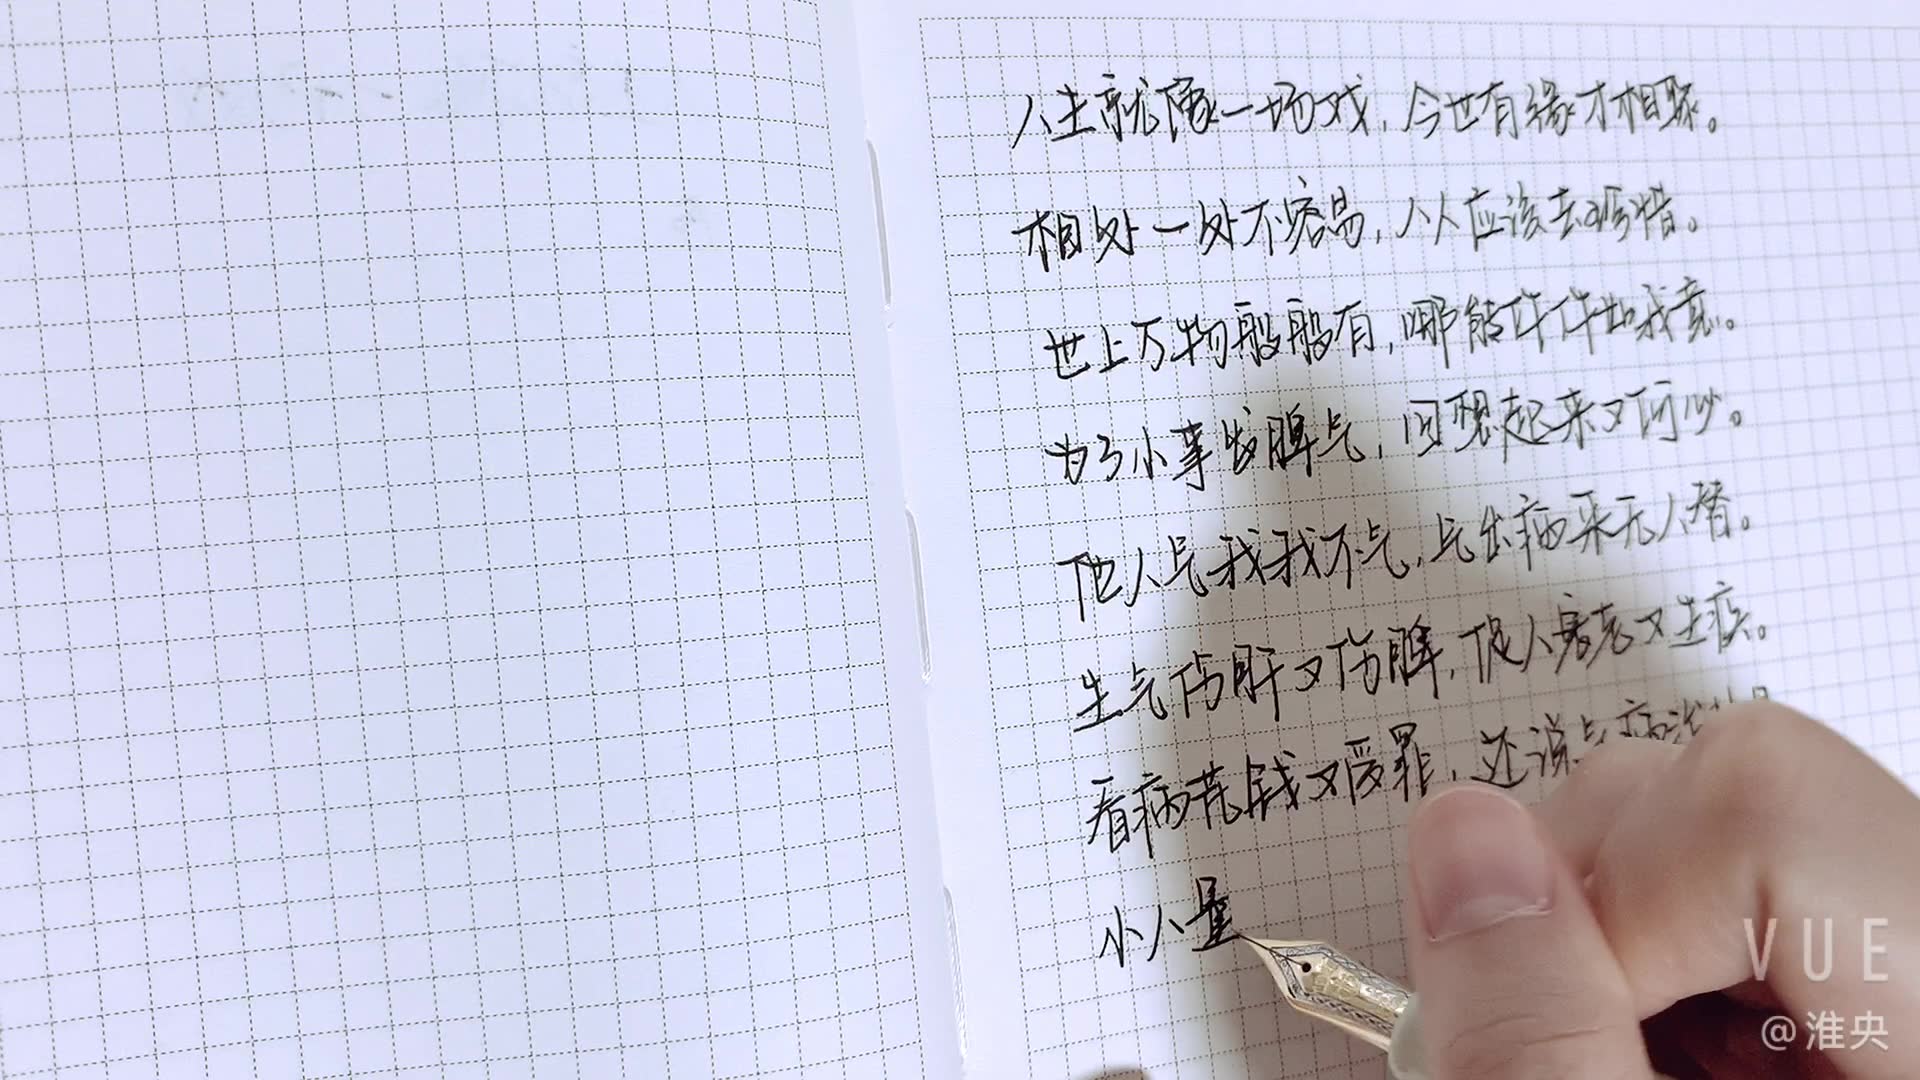 人生就像一场戏，今世有缘才相聚。
相处一处不容易，人人应该去珍惜。
世上万物般般有，哪能件件如我意。
为了小事发脾气，回想起来又何必。
他人气我我不气，气出病来无人替。
生气伤肝又伤脾，促人衰老又生疾。
看病花钱又受罪，还说气病治
小人量
VUE
@淮央